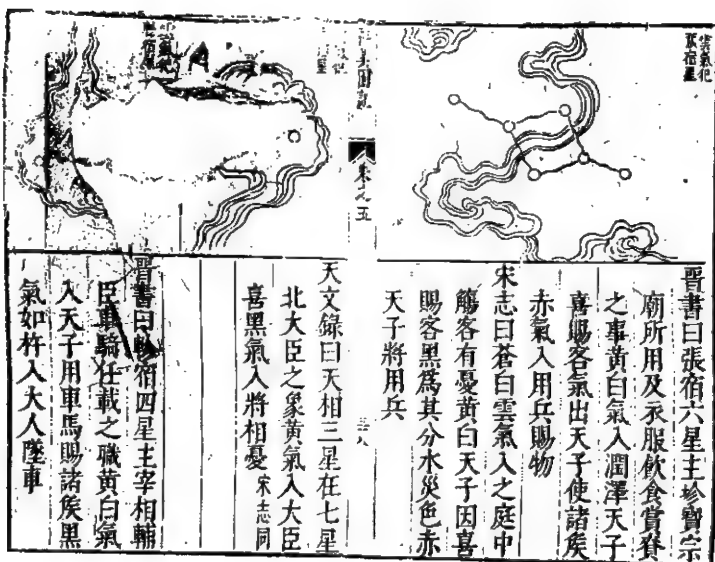 雲氣犯
張宿星
晉書曰張宿六星主珍寶宗
廟所用及衣服飲食賞賚
之事黃白氣入潤澤天子
喜賜客氣出天子使諸矦
赤氣入用兵賜物
宋志曰蒼白雲氣入之庭中
觴客有憂黃白天子因喜
賜客黑爲其分水災色赤
天子將用兵
卷之五
三八
天文錄曰天相三星在七星
北大臣之象黃氣入大臣
喜黑氣入將相憂宋志同
晉書曰軫宿四星主宰相輔
臣車騎任載之職黃白氣
入天子用車馬賜諸矦黑
氣如杵入大人墜車